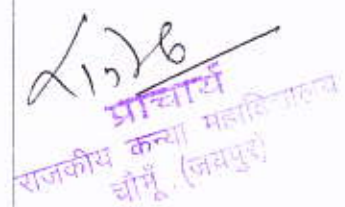 प्राचार्य
राजकीय कन्या महाविद्यालय
चौमूँ (जयपुर)